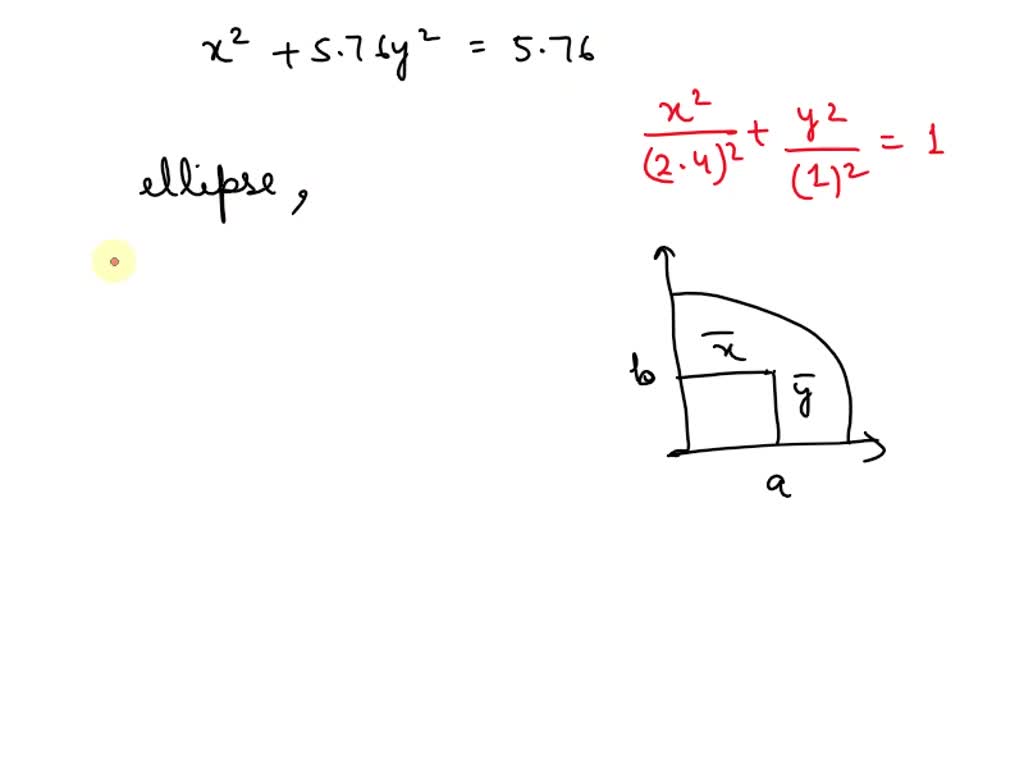 x² + 5.76y² = 5.76
x²/(2.4)² + y²/(1)² = 1
ellipse,
x̅
b
y̅
a